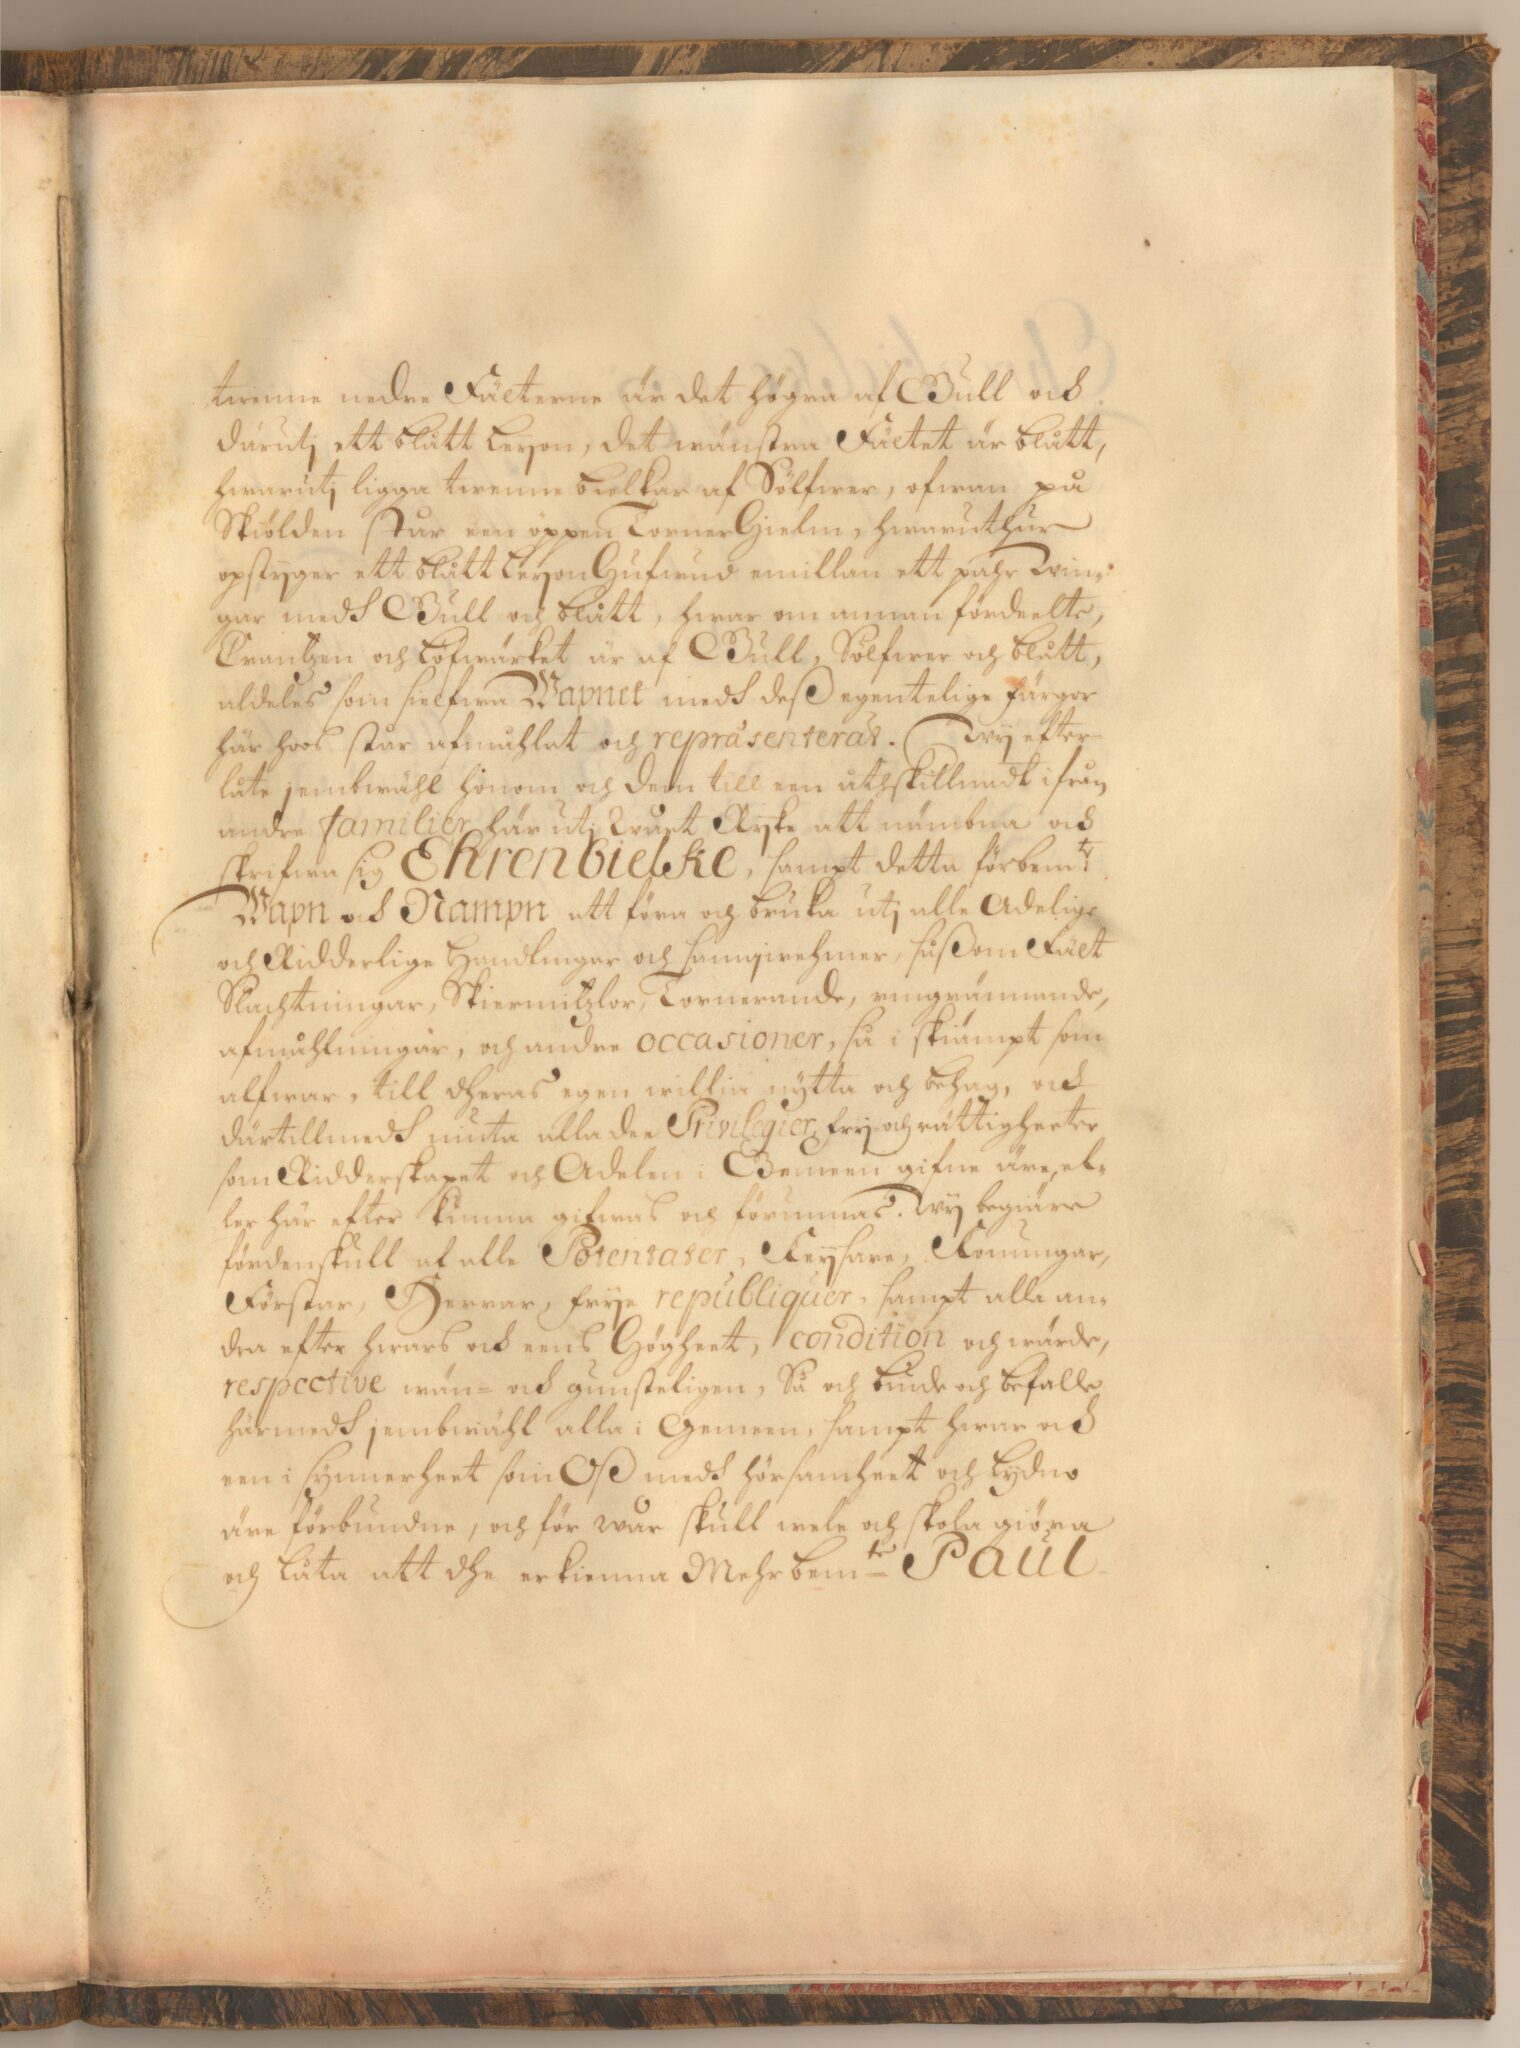 twenne nedre Fälterne är det högra af Gull och
därutj ett blått Leyon, det wänstra Fältet är blått,
hwarutj ligga twenne bielkar af Sölfwer, ofwan på
Skiölden står een öppen TornerHielm, hwaruthur
opstyger ett blått LeyonHufwud emillan ett pahr Win=
gar medh Gull och blått, hwar om annan fördeelte,
Crantzen och Löfwärket är af Gull, Sölfwer och blått,
aldeles som sielfwa Wapnet medh deß egentelige färgor
här hoos står afmåhlat och repræsenterat. Wy efter=
låte jembwähl honom och dem till een åthskillnadt ifrån
andre familier här utj Wårt Ryke att nämbna och
skrifwa sig EhrenBielke, sampt detta förbem:te
Wapn och Nampn att föra och bruka utj alle Adelige
och Ridderlige Handlingar och samqwehmer, såßom Fält
Slachtningar, Skiermitzlor, Tornerande, ringrännande,
afmåhlningar, och andre occasioner, så i skiämpt som
alfwar, till dheras egen willia nytta och behag, och
därtillmedh niuta alla dee Privilegier, fry- och rättigheeter
som Ridderskapet och Adelen i Gemeen gifne äre, el=
ler här efter kunna gifwas och förunnas. Wy begiäre
fördenskull af alle Potentater, Keysare, Konungar,
Förstar, Herrar, frye republiquer, sampt alla an=
dra efter hwars och eens Högheet, condition och wärde,
respective wän= och gunsteligen, Så och biude och befalle
härmedh jembwähl alla i Gemeen, sampt hwar och
een i synnerheet som Oß medh hörsamheet och Lydno
äre förbundne, och för wår skull wele och skola giöra
och låta att dhe erkienna Mehrbem:te Paul